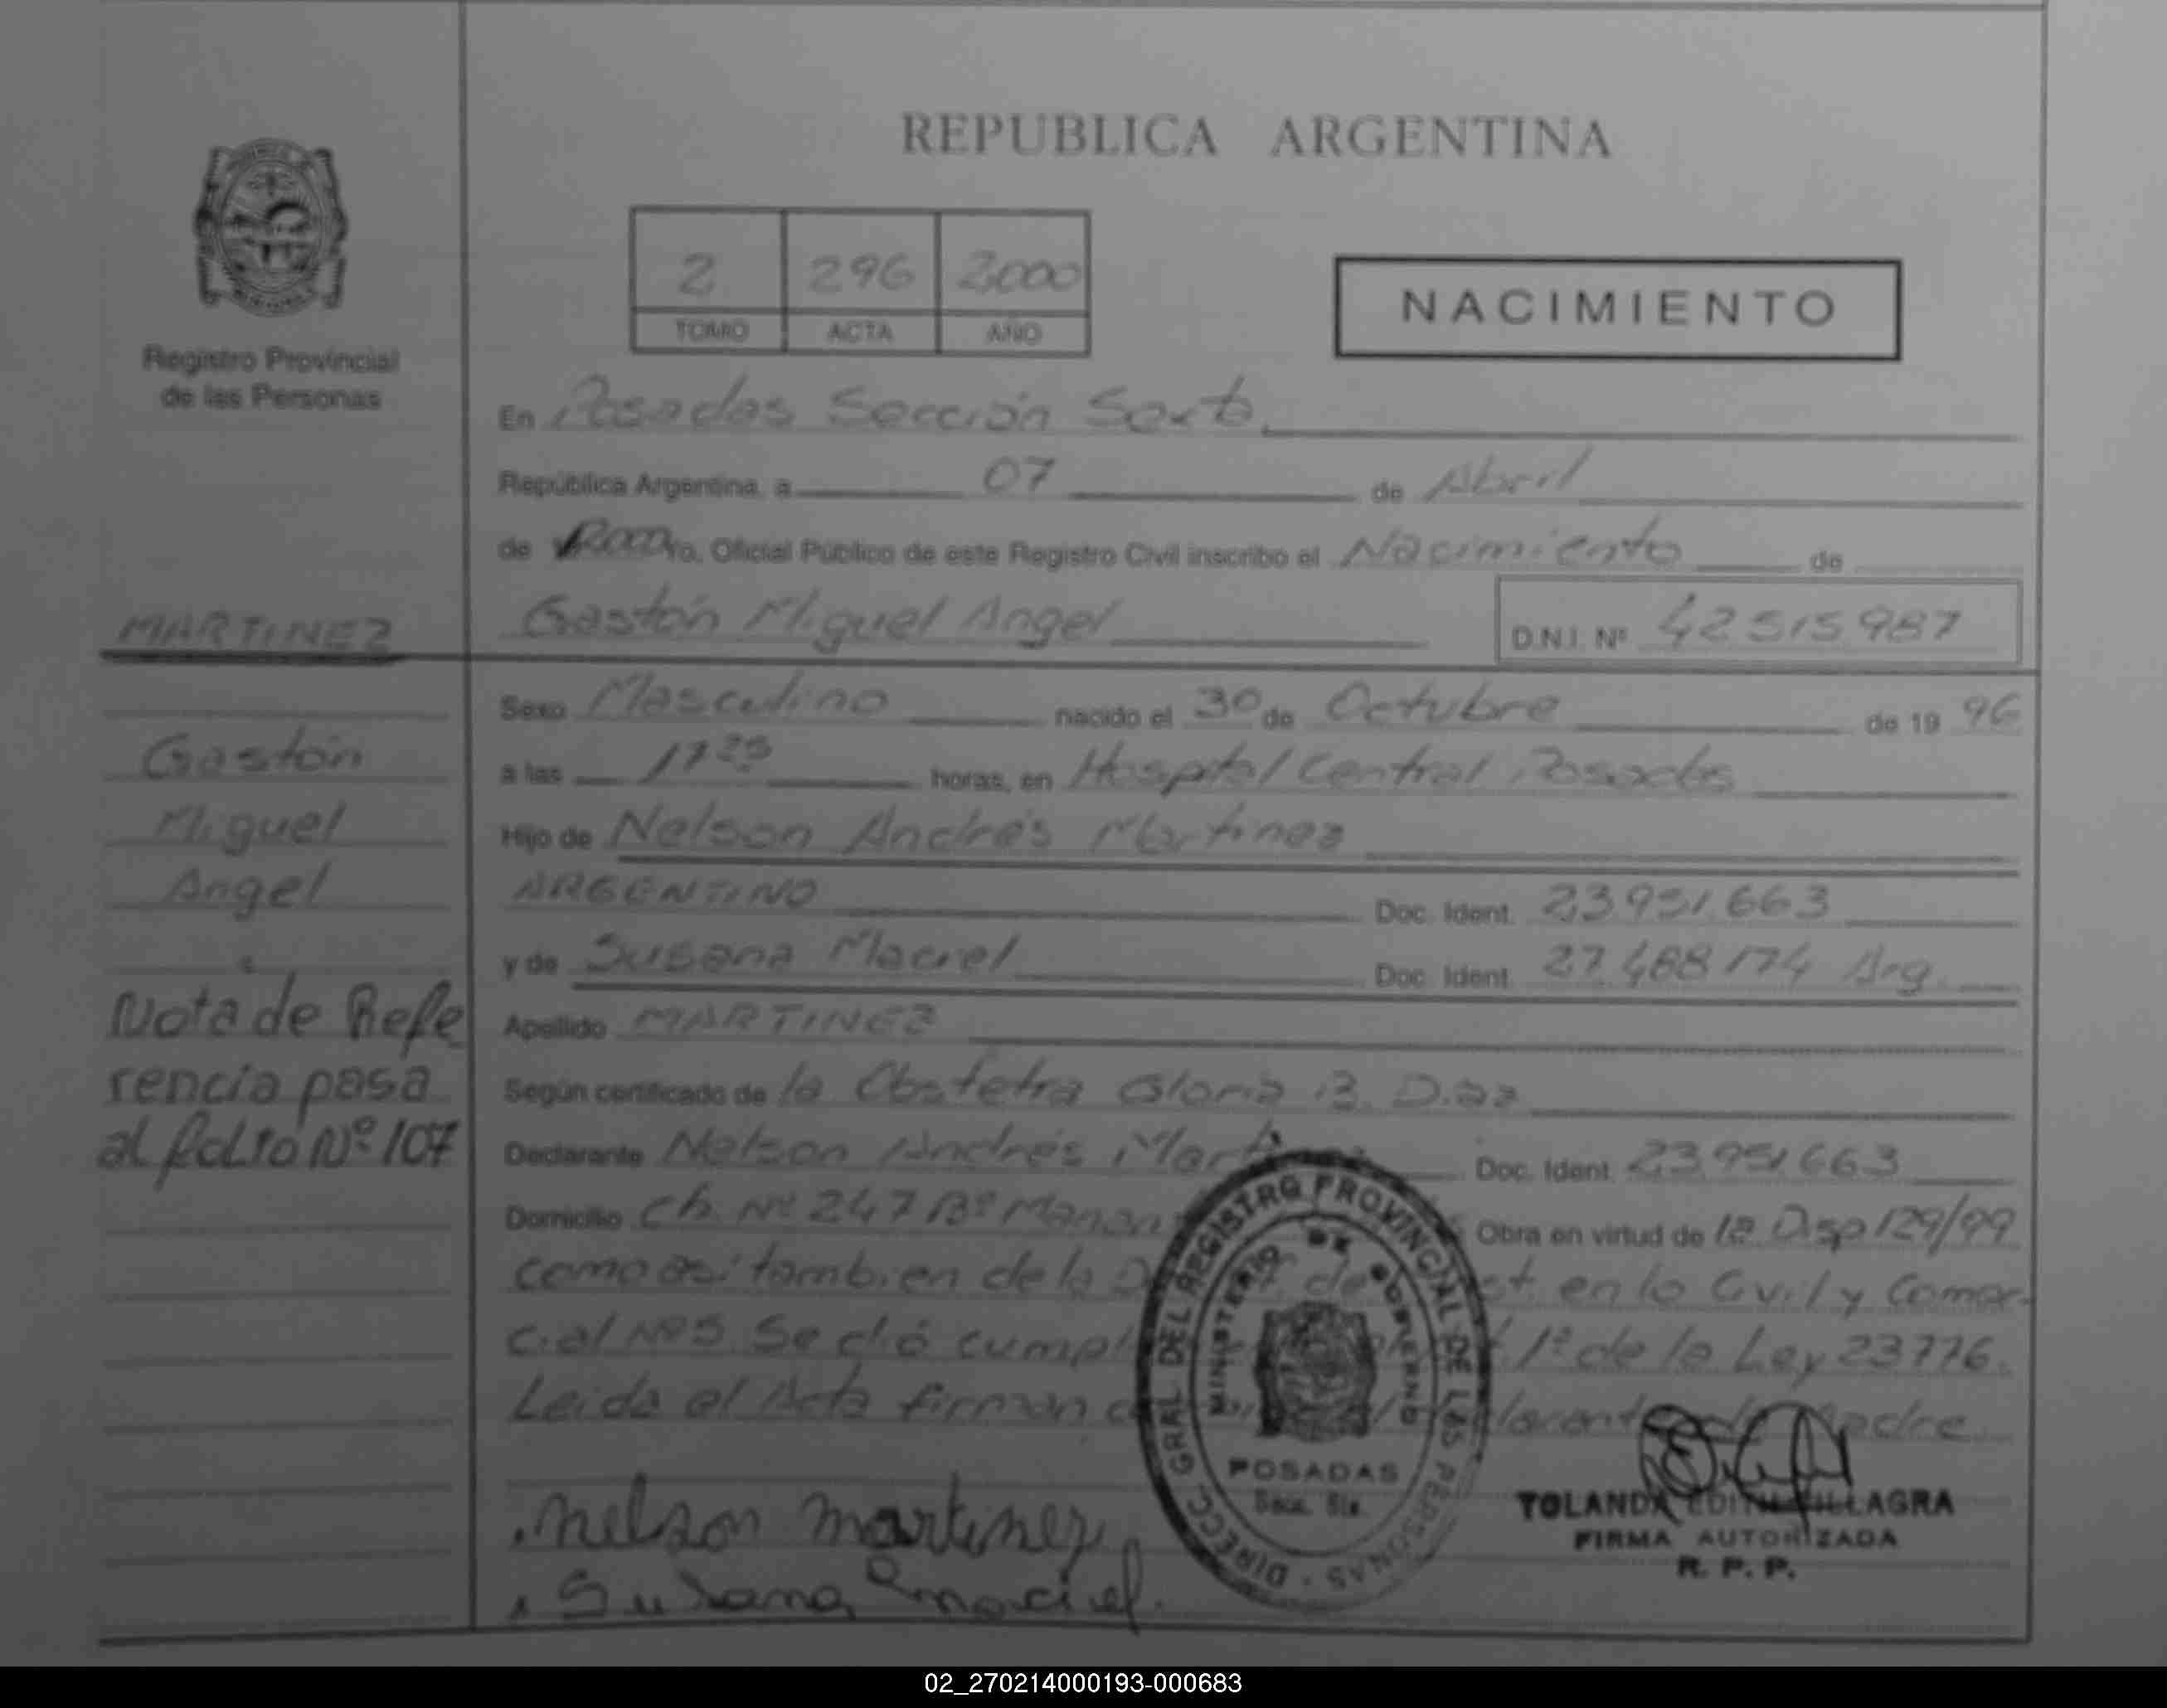 REPUBLICA ARGENTINA
2 296 2000
TOMO ACTA AÑO
NACIMIENTO
Registro Provincial
de las Personas
En Posadas Sección Sexta
República Argentina, a 07 de Abril
de 2000 Yo, Oficial Público de este Registro Civil inscribo el Nacimiento de
MARTINEZ
Gastón Miguel Angel
D.N.I. Nº 42515987
Sexo Masculino nacido el 30 de Octubre de 19 96
Gastón
Miguel
Angel
a las horas, en Hospital Central Posadas
Hijo de Nelson Andrés Martinez
ARGENTINO Doc. Ident. 23.951.663
y de Susana Maciel Doc. Ident. 27.488.174 Arg.
Apellido MARTINEZ
Nota de Refe
rencia pasa
al folio Nº 107
Según certificado de la Obstetra Gloria B. Diaz
Declarante Nelson Andrés Doc. Ident. 23.951.663
Domicilio Ch. Nº 247 Bº Obra en virtud de la Disp 129/99
como asi tambien de la en lo Civil y Comer-
cial Nº 5. Se dió 1º de la Ley 23776.
Leida el Acta firman
DIRECC. GRAL. DEL REGISTRO PROVINCIAL DE LAS PERSONAS
MINISTERIO DE GOBIERNO
POSADAS
Secc. 6ta.
Nelson Martinez
Susana Maciel
YOLANDA EDITH VILLAGRA
FIRMA AUTORIZADA
R. P. P.
02_270214000193-000683